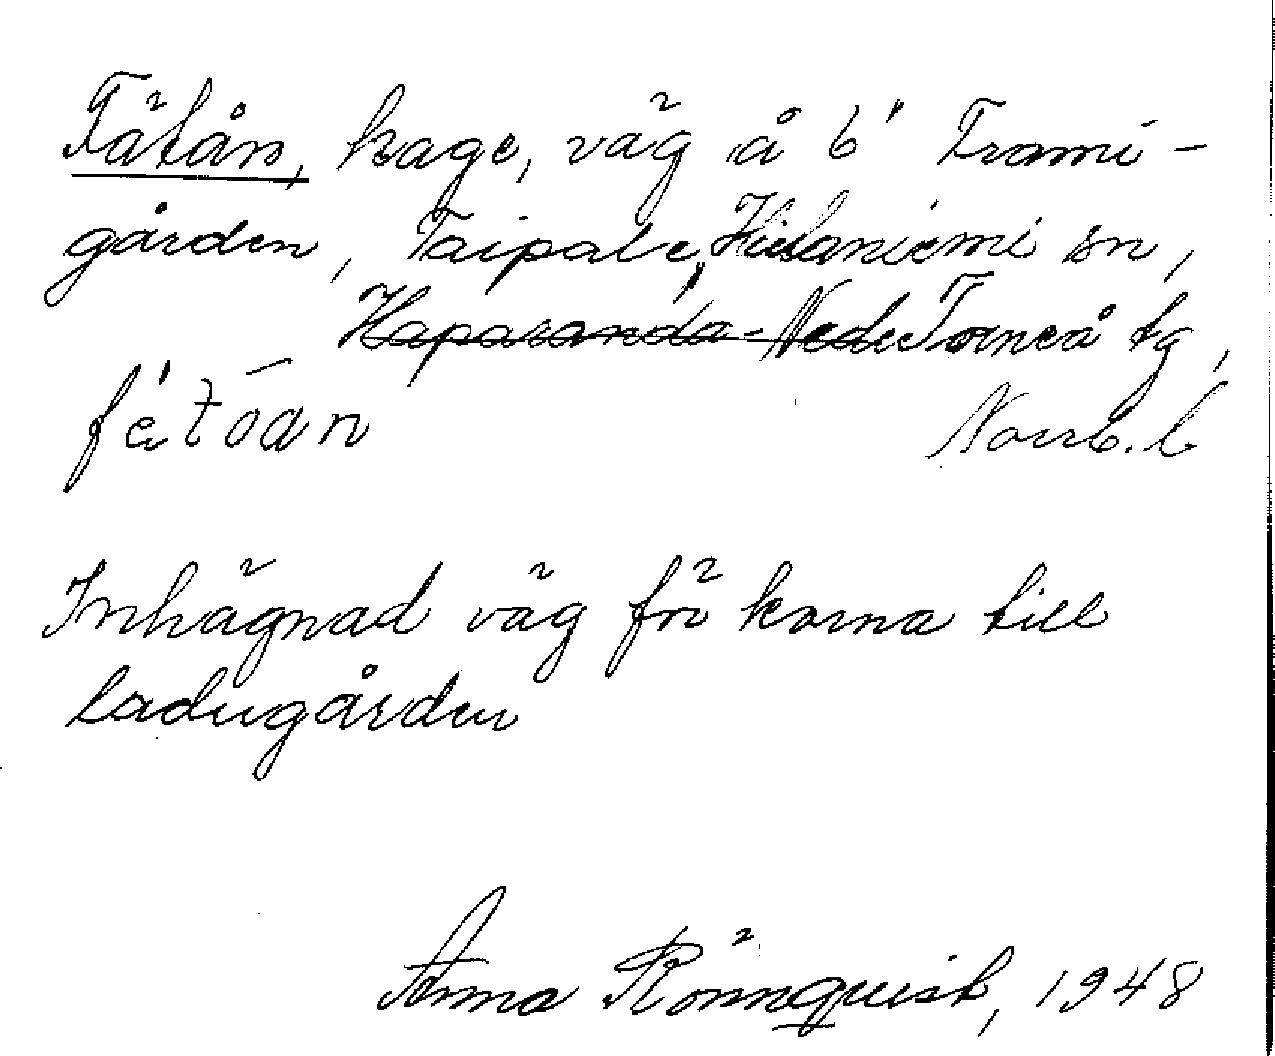 Fätån, hage, väg å 6' Frami-
gården, Taipale, Hietaniemi sn,
Haparanda-NederTorneå tg,
Norrb. l
fé̄tōan
Inhägnad väg för korna till
ladugården
Anna Rönnquist, 1948